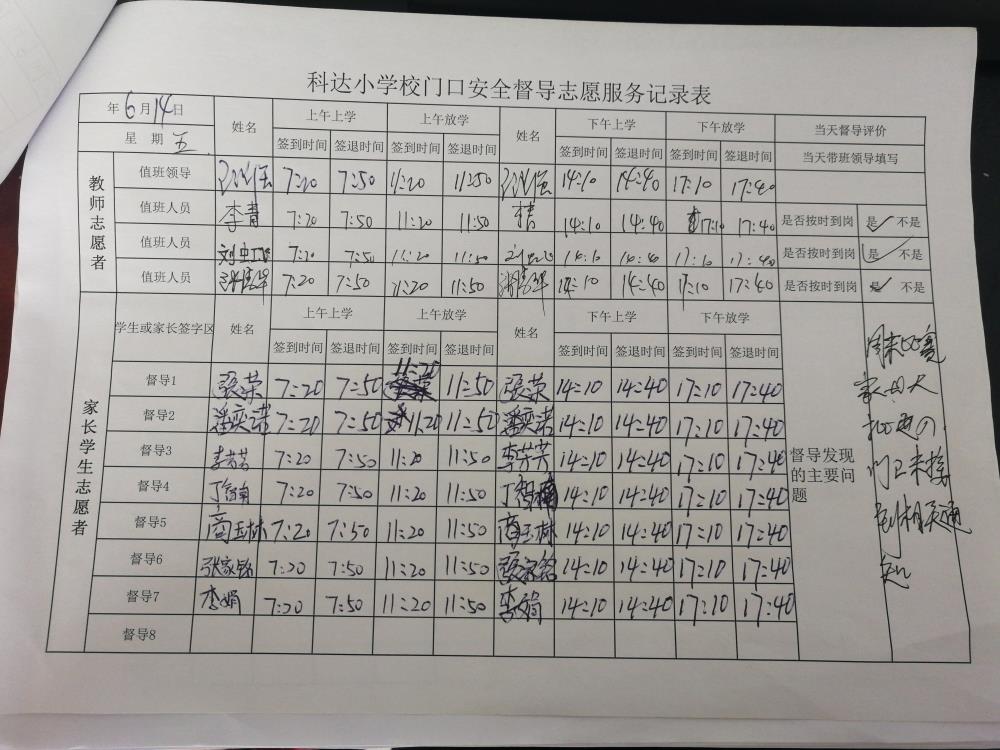 科达小学校门口安全督导志愿服务记录表
年6月14日 姓名 上午上学 上午放学 姓名 下午上学 下午放学 当天督导评价
星期五 签到时间 签退时间 签到时间 签退时间 签到时间 签退时间 签到时间 签退时间 当天带班领导填写
教师志愿者
值班领导 7:20 7:50 11:20 11:50 14:10 14:40 17:10 17:40
值班人员 李青 7:20 7:50 11:20 11:50 李青 14:10 14:40 17:10 17:40 是否按时到岗 是✓ 不是
值班人员 7:20 7:50 11:20 11:50 14:10 14:40 17:10 17:40 是否按时到岗 是✓ 不是
值班人员 7:20 7:50 11:20 11:50 14:10 14:40 17:10 17:40 是否按时到岗 是✓ 不是
家长学生志愿者
学生或家长签字区 姓名 上午上学 上午放学 姓名 下午上学 下午放学
签到时间 签退时间 签到时间 签退时间 签到时间 签退时间 签到时间 签退时间
督导1 张荣 7:20 7:50 11:20 11:50 张荣 14:10 14:40 17:10 17:40
督导2 潘奕诺 7:20 7:50 11:20 11:50 潘奕诺 14:10 14:40 17:10 17:40
督导3 李芳芳 7:20 7:50 11:20 11:50 李芳芳 14:10 14:40 17:10 17:40
督导4 7:20 7:50 11:20 11:50 14:10 14:40 17:10 17:40
督导5 商玉林 7:20 7:50 11:20 11:50 商玉林 14:10 14:40 17:10 17:40
督导6 张家铭 7:20 7:50 11:20 11:50 张家铭 14:10 14:40 17:10 17:40
督导7 李娟 7:20 7:50 11:20 11:50 李娟 14:10 14:40 17:10 17:40
督导8
督导发现
的主要问
题
周末比赛
门卫未接
到相关通
知